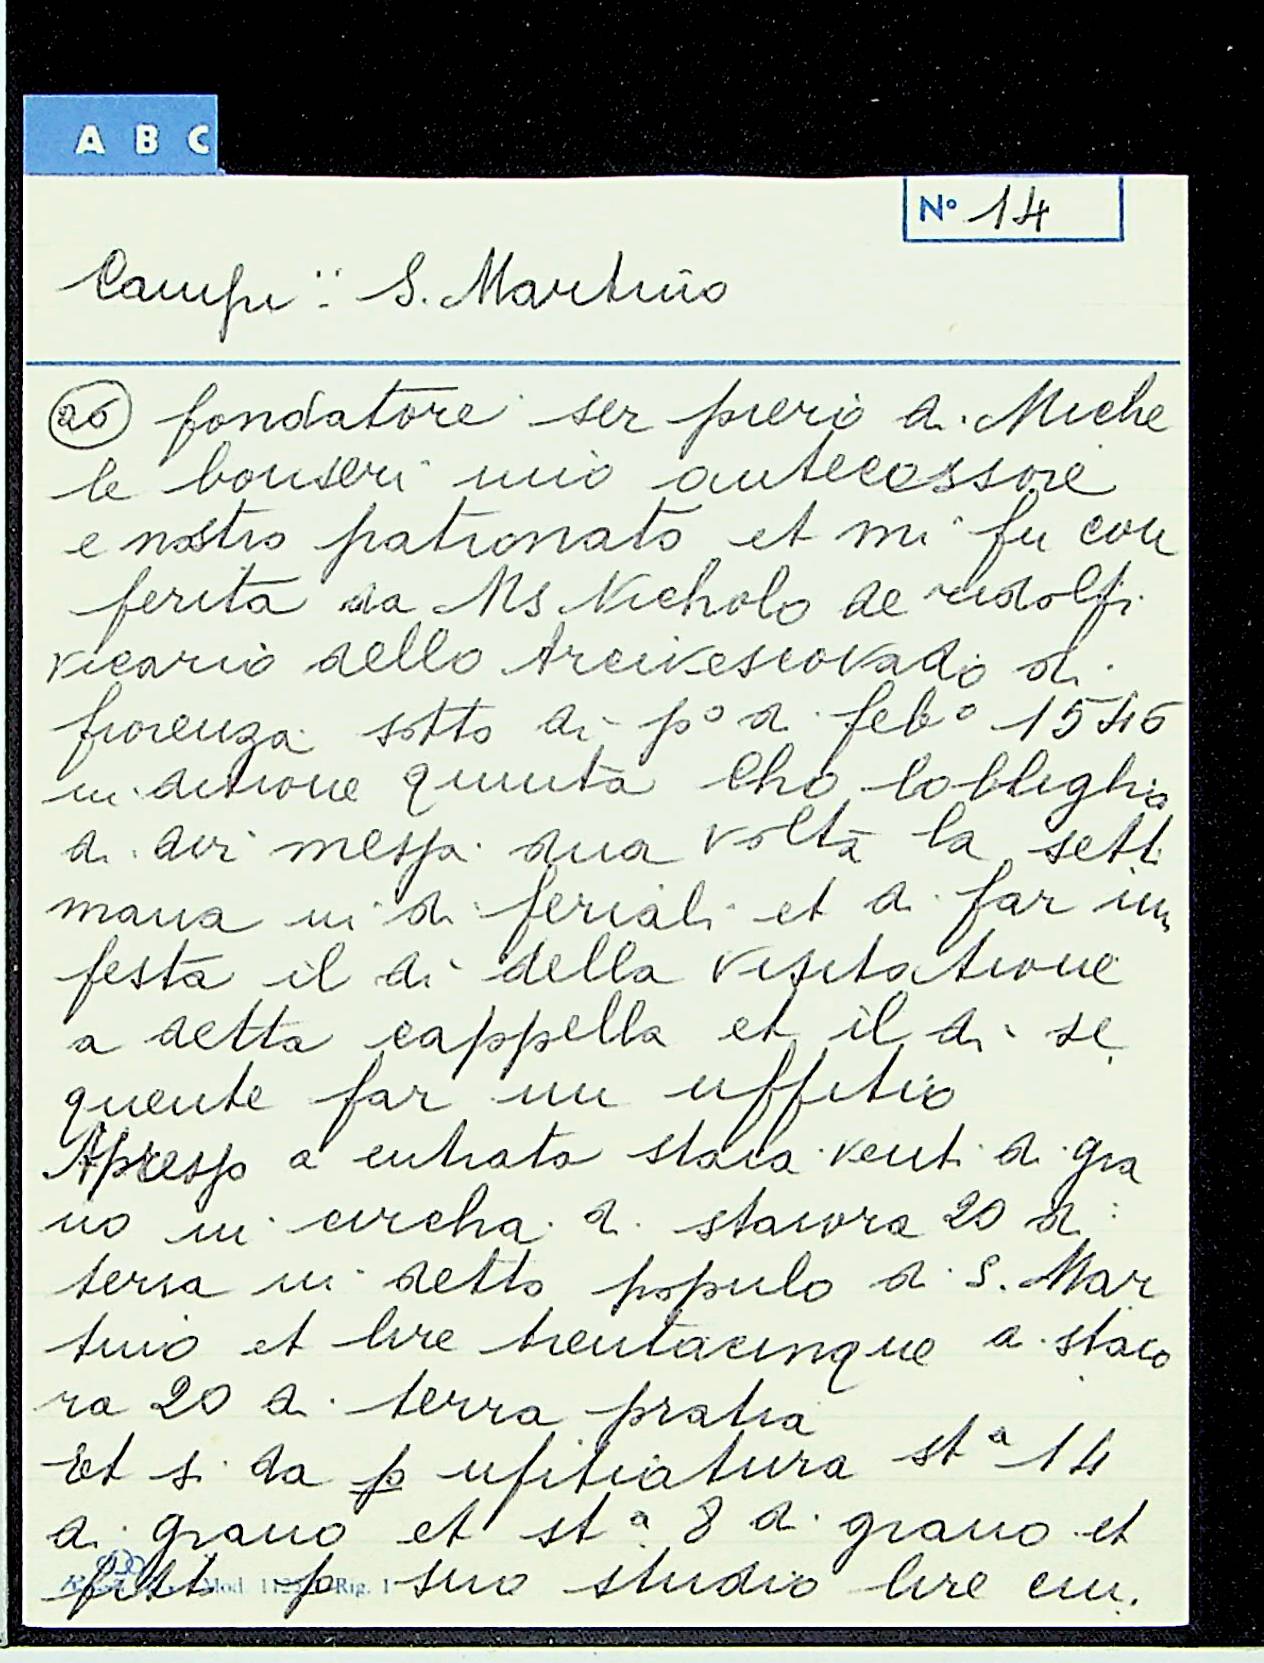 A B C
N° 14
Campi: S. Martino
26 fondatore ser piero di Miche
le bonseri mio antecessore
e nostro patronato et mi fu con
ferita da Ms Nicholo de ridolfi
vicario dello Arcivescovado di
fiorenza sotto di p° di feb° 1546
inditione quinta Cho lobligho
di dir messa dua volta la setti
mana in di feriali et di far un
festa il di della visitatione
a detta cappella et il di se
guente far un uffitio
Apresso a entrata staia venti di gra
no in circha di staiora 20 di
terra in detto populo di S. Mar
tino et lire trentacinque di staio
ra 20 di terra pratia
Et si da p ufitiatura stª 14
di grano et stª 8 di grano et
fitt p suo studio lire cin.
Mod. Rig. 1